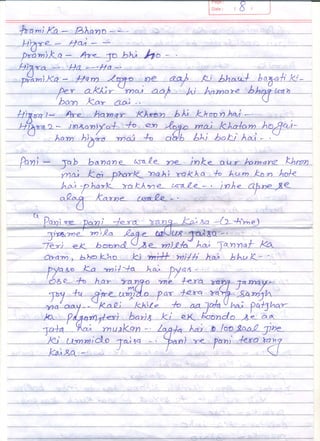 Page
Date 8
Pramika - Bhano - -
Higre - Hai - -
pramika - Are Jo bhi Ho - .
Higra - Ha - Ha -
pramika - Hum logo ne aap ki bhaut bazati ki -
per akhir mai aap hi hamare bhagwan
ban kar aai..
Higra1 - Are hamar Khron bhi khronhai -
Higra2 - insaniyat to en logo mai khatam ho gai -
ham higra mai to aab bhi boki hai..
Pani - Jab banane wale ne inke aur hamare Khron
mai koi phark nahi rakha to hum kon hote
hai phark rakhne wale... inhe apne se
alag karne wale...
" Pani re pani tera rang Kaisa - (2 time)
jisme mila lage us jaisa -
Teri ek boond se milta hai Jannat Ka
aram, bhokho ki mitti hai bhuk -
pyaso Ka mitta hai pyas..
Ose to har rango me tera rang jamay
Joy tu gire umido par tera rang samjh
na aay - Kali khile to aa jata hai patjhar
ka teri baris ki ek boondo se aa
jata hai muskan - lagta hai o 100 saal jine
ki ummido jaisa.. pani re pani tera rang
kaisa -